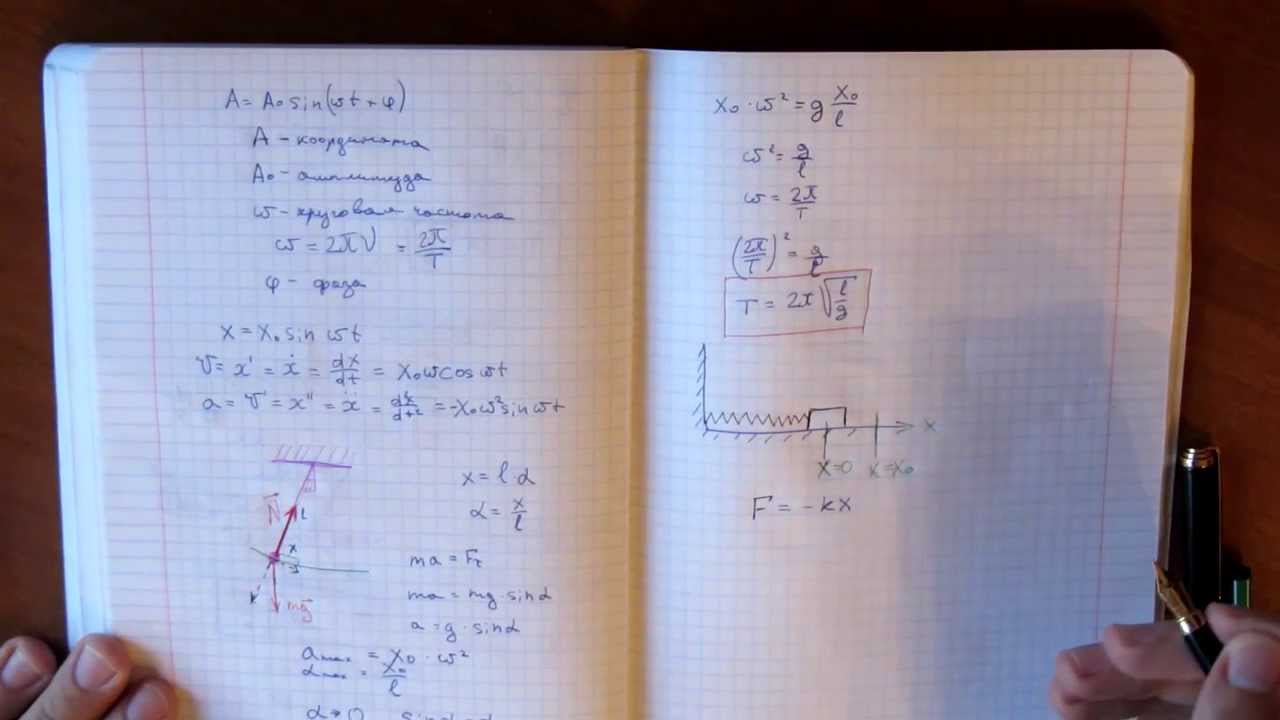 A = A₀ sin(ωt + φ)
A - координата
A₀ - амплитуда
ω - круговая частота
ω = 2πν = 2π/T
φ - фаза
x = x₀ sin ωt
v = x' = ẋ = dx/dt = x₀ω cos ωt
a = v' = x'' = ẍ = d²x/dt² = -x₀ω² sin ωt
N⃗
l
x
mg⃗
x = l · α
α = x/l
ma = Fτ
ma = mg · sin α
a = g · sin α
a max = x₀ · ω²
α max = x₀/l
x₀ · ω² = g x₀/l
ω² = g/l
ω = 2π/T
(2π/T)² = g/l
T = 2π √(l/g)
x
x=0 x=x₀
F = -kx